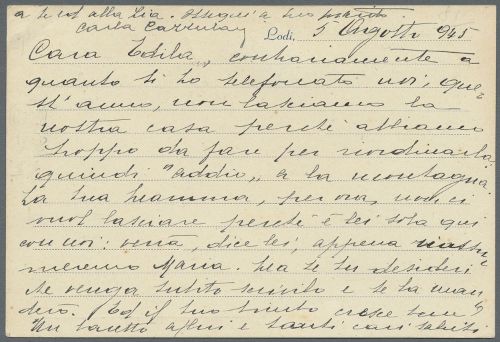 a te ed alla Lia. Ossequi a tuo marito.
Carla
Lodi, 5 Agosto 945
Cara Edila, contrariamente a
quanto ti ho telefonato noi, que-
st'anno, non lasciamo la
nostra casa perché abbiamo
troppo da fare per riordinarla,
quindi "addio" a la montagna.
La tua mamma, per ora, non ci
vuol lasciare perché è lei sola qui
con noi: verrà, dice lei, appena
Maria. Ma se tu desideri
che venga subito scrivilo e te la man-
derò. Ed il tuo bimbo cresce bene?
Un bacetto a lui e tanti cari saluti